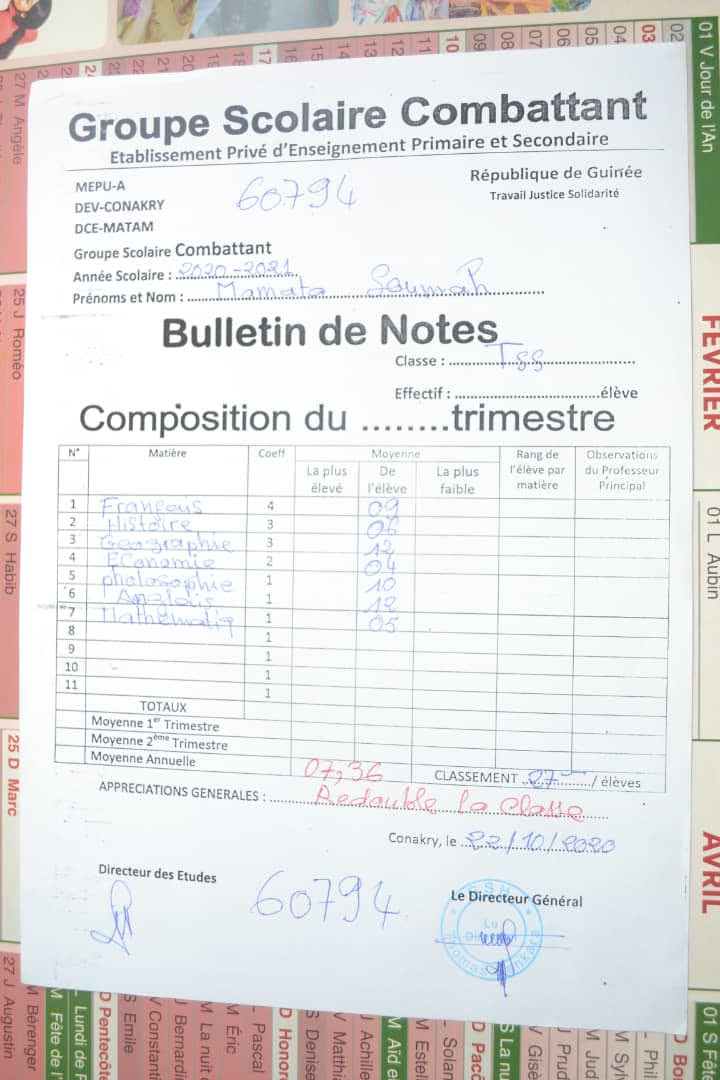 Groupe Scolaire Combattant
Etablissement Privé d'Enseignement Primaire et Secondaire
MEPU-A
60794
République de Guinée
DEV-CONAKRY
Travail Justice Solidarité
DCE-MATAM
Groupe Scolaire Combattant
Année Scolaire : 2020-2021
Prénoms et Nom : Mamata Soumah
Bulletin de Notes
Classe : Tss
Effectif : ..............................élève
Composition du ........trimestre
N° Matière Coeff Moyenne Rang de l'élève par matière Observations du Professeur Principal
La plus élevé De l'élève La plus faible
1 Français 4 09
2 Histoire 3 06
3 Geographie 3 12
4 Economie 2 04
5 pholosophie 1 10
6 Anglais 1 12
7 Mathematiq 1 05
8 1
9 1
10 1
11 1
TOTAUX
Moyenne 1er Trimestre
Moyenne 2ème Trimestre
Moyenne Annuelle 07,36 CLASSEMENT 27 / élèves
APPRECIATIONS GENERALES : Redouble la Classe
Conakry, le 22/10/2020
Directeur des Etudes
60794
Le Directeur Général
01 V Jour de l'An
FEVRIER
01 L Aubin
AVRIL
27 M Angèle
25 J Roméo
27 S Habib
25 D Marc
27 J Augustin
M Bérenger
D Pentecôte
S Emile
M Éric